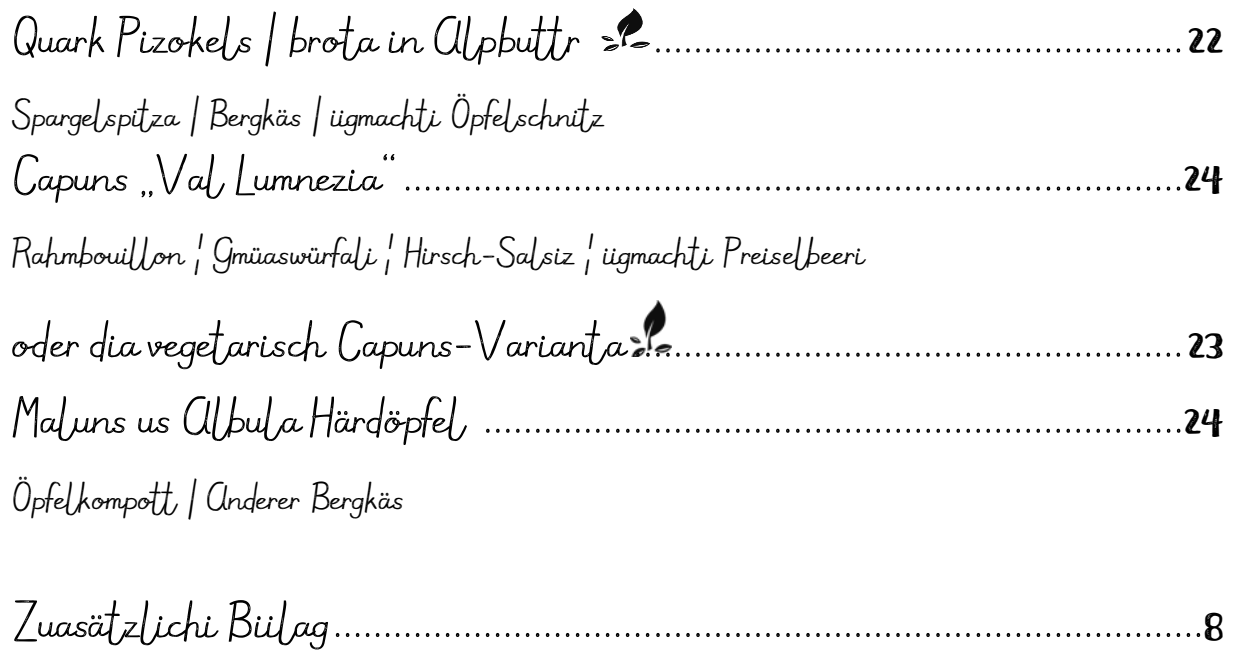 Quark Pizokels | brota in Alpbuttr ........................................................ 22
Spargelspitza | Bergkäs | iigmachti Öpfelschnitz
Capuns „Val Lumnezia“ ........................................................ 24
Rahmbouillon ¦ Gmüaswürfali ¦ Hirsch-Salsiz ¦ iigmachti Preiselbeeri
oder dia vegetarisch Capuns-Varianta........................................................ 23
Maluns us Albula Härdöpfel ........................................................ 24
Öpfelkompott | Anderer Bergkäs
Zuasätzlichi Biilag........................................................ 8